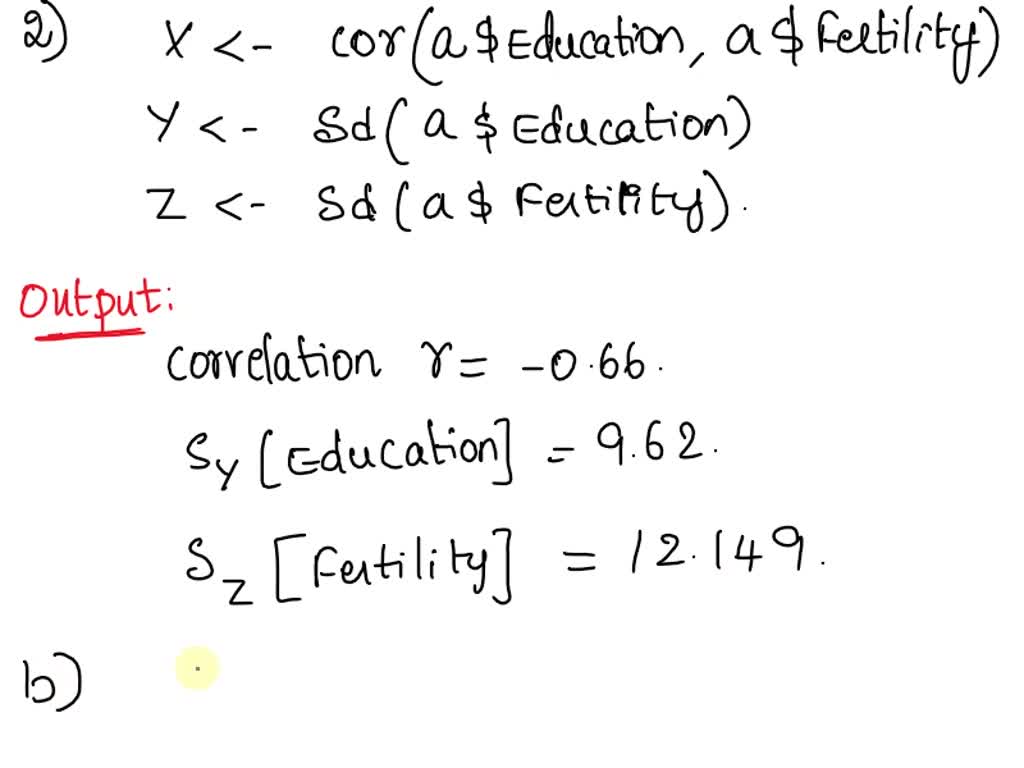 2) X <- cor(a $ Education, a $ Feltility)
Y <- Sd( a $ Education)
Z <- Sd (a $ Fertility).
Output:
correlation r = -0.66.
Sy [Education] = 9.62.
Sz [Fertility] = 12.149.
b)